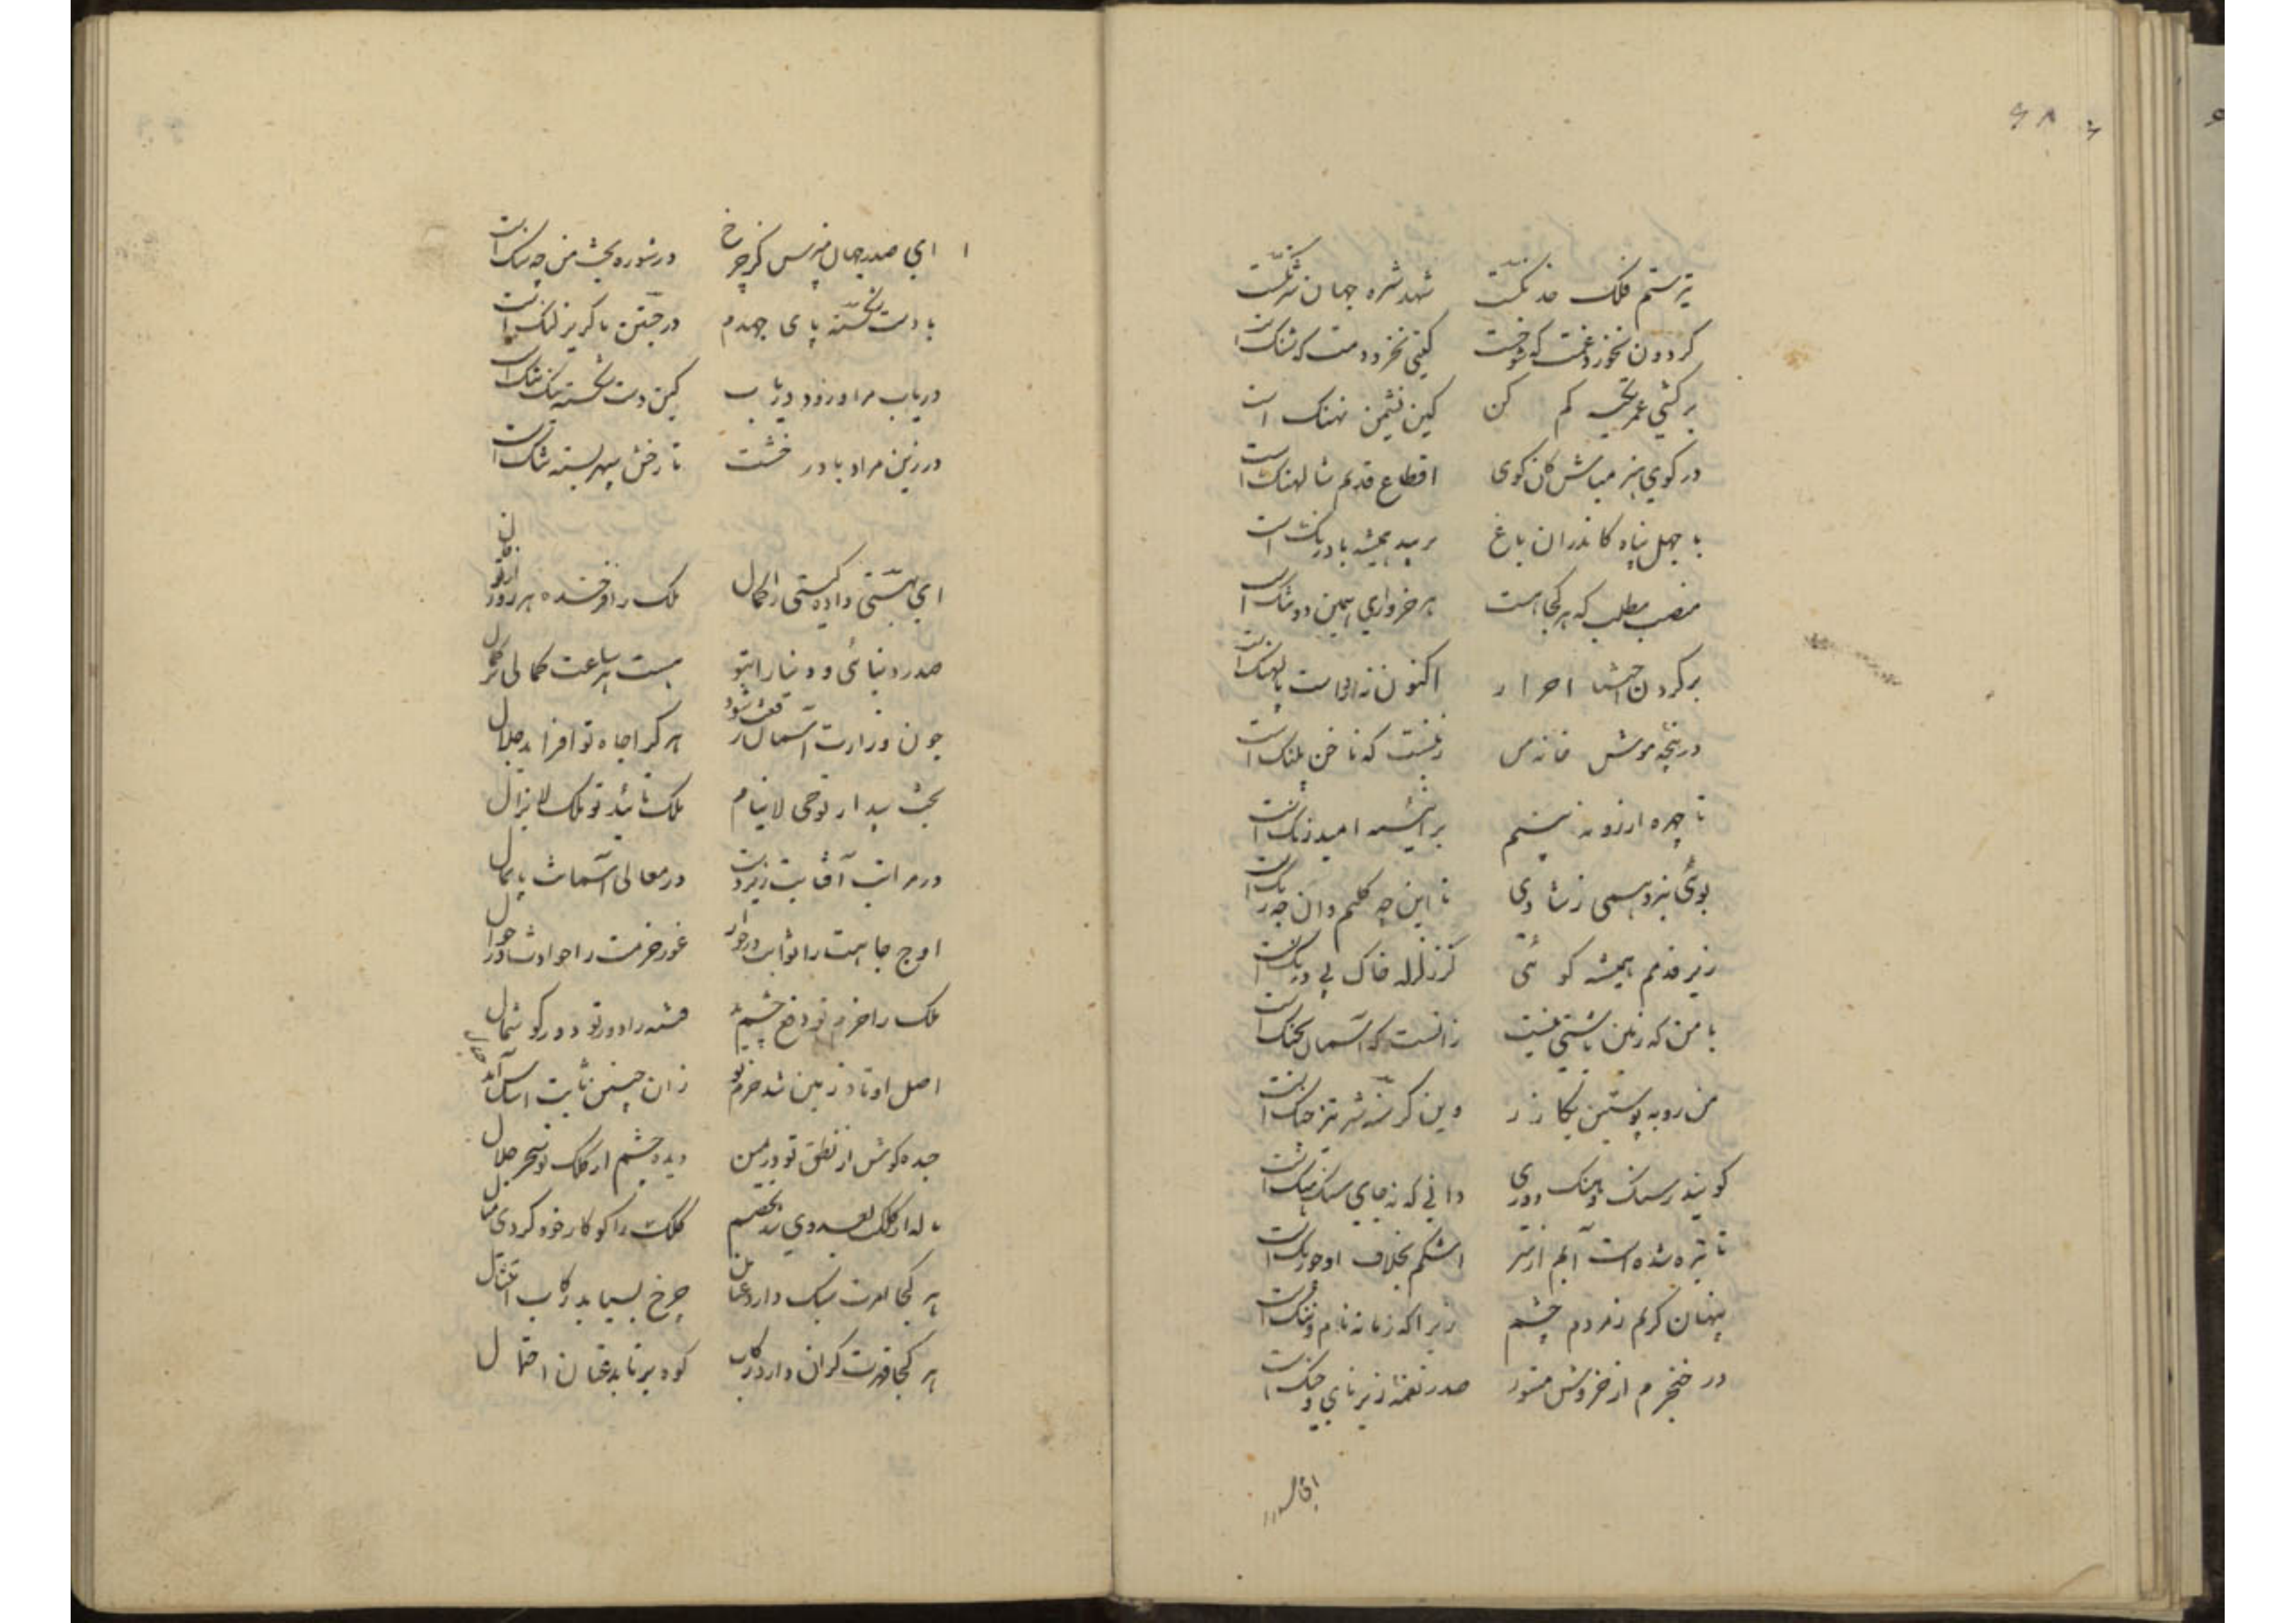 ۶۸
تیر ستم فلک خدنکست شهد شره جهان شرنکست
کردون نخورد غمت که شوخست کیتی نخرد دمت که شنک است
بر کشتی عمر تکیه کم کن کین نشیمن نهنک است
در کوی هنر مباش کان کوی اقطاع قدیم شالهنک است
با جهل پناه کاندران باغ بر بید همیشه بادرنک است
منصب مطلب که هر کجا هست هر خرواری
بر کردن احرار اکنون نه پالهنک است
در پنجه موش خانه من که ناخن پلنک است
تا چهره ارزو نه بینم بر ائینه امید زنک است
بوئی نبرد همی ز شادی تا این چه کلیم وان چه رنک است
زیر قدمم همیشه کوئی کز زلزله خاک بی درنک است
با من که زمین باشتی نیست زانست که آسمان بجنک است
من روبه پوستین بکازر وین کرسنه شیر تیز چنک است
کویند رسنک و هنک دوری دانی که نه جای سنک و هنک است
تا تیره شده است آبم از سر اشکم بخلاف او چو زنک است
پنهان کریم ز مردم چشم زیرا که زمانه نام و ننک است
در حنجرم از خروش مستور صد نغمه زیر نای و چنک است
ای صدر جهان مپرس کز چرخ در شوره بخت من چه سنک است
با دست شکسته پای جهدم در جستن با کریز لنک است
دریاب مرا و زود دریاب کین دست شکسته تنک است
در زین مراد باد رخشت تا رخش سپهر بسته تنک است
ای بهستی داده کیتی را کمال ملک را فرخنده هر روز از تو فال
صدر دنیائی و دنیا را بتو هست هر ساعت کمالی بر کمال
چون وزارت آسمان رفعت شود هر کرا جاه تو افزاید جلال
بخت بیدار تو حی لا ینام ملک تائید تو ملک لا یزال
در مراتب آفتابت زیردست در معالی آسمانت پایمال
اوج جاهت را ثوابت در جوار غور حزمت را حوادث در جوال
ملک را حزم تو دفع چشم بد فتنه را دور تو دور کوشمال
اصل اوتاد زمین شد حزم تو زان چنین ثابت اساس آمد جبال
دیده چشم از کلک تو سحر حلال
کلک را کو کار خود کردی
هر کجا امرت سبک دارد عنان چرخ بسپاید رکاب امتثال
هر کجا قهرت کران دارد رکاب کوه برتابد عنان احتمال